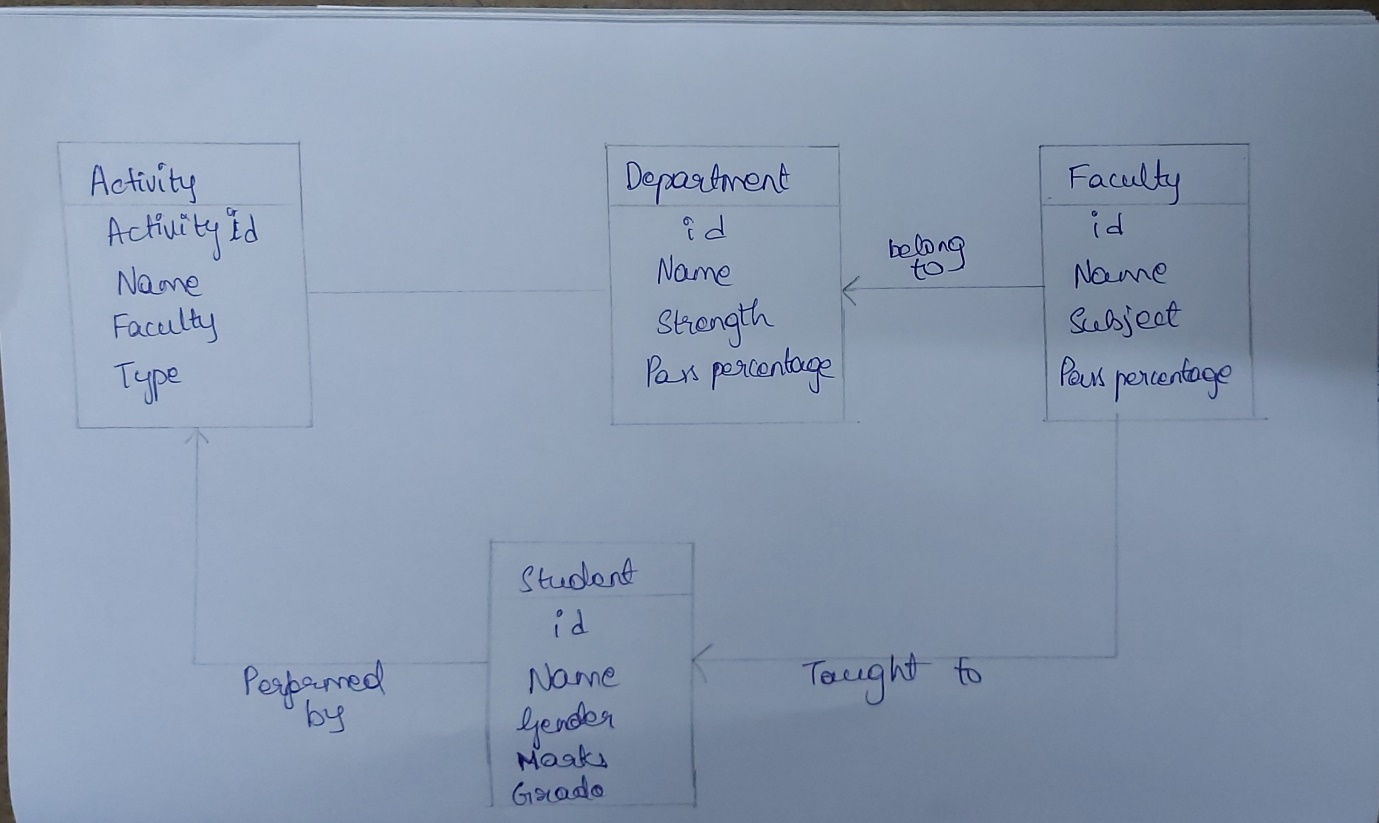 Activity
Activity id
Name
Faculty
Type
Department
id
Name
Strength
Pass percentage
belong
to
Faculty
id
Name
Subject
Pass percentage
Student
id
Name
Gender
Marks
Grade
Performed
by
Taught to